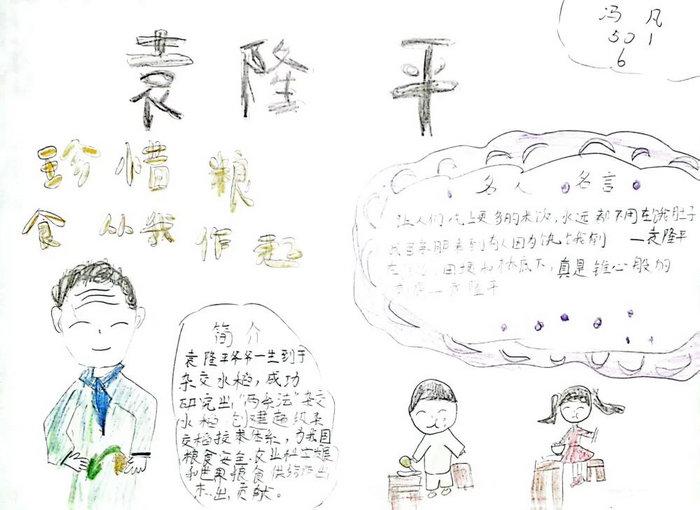 袁隆平
冯凡
501
6
珍惜粮
食从我作起
名人名言
让人们吃上更多的米饭,永远都不用在饿肚子
当 朋 看到有人因为饥饿 倒 —袁隆平
在 田埂和 底下,真是锥心般的
—袁隆平
简介
袁隆平爷爷一生 于
杂交水稻,成功
研究出“两系法”杂交
水稻 创建超级杂
交稻技术体系,为我国
粮食安全,农业科
和世界粮食供给 出
杰出贡献。